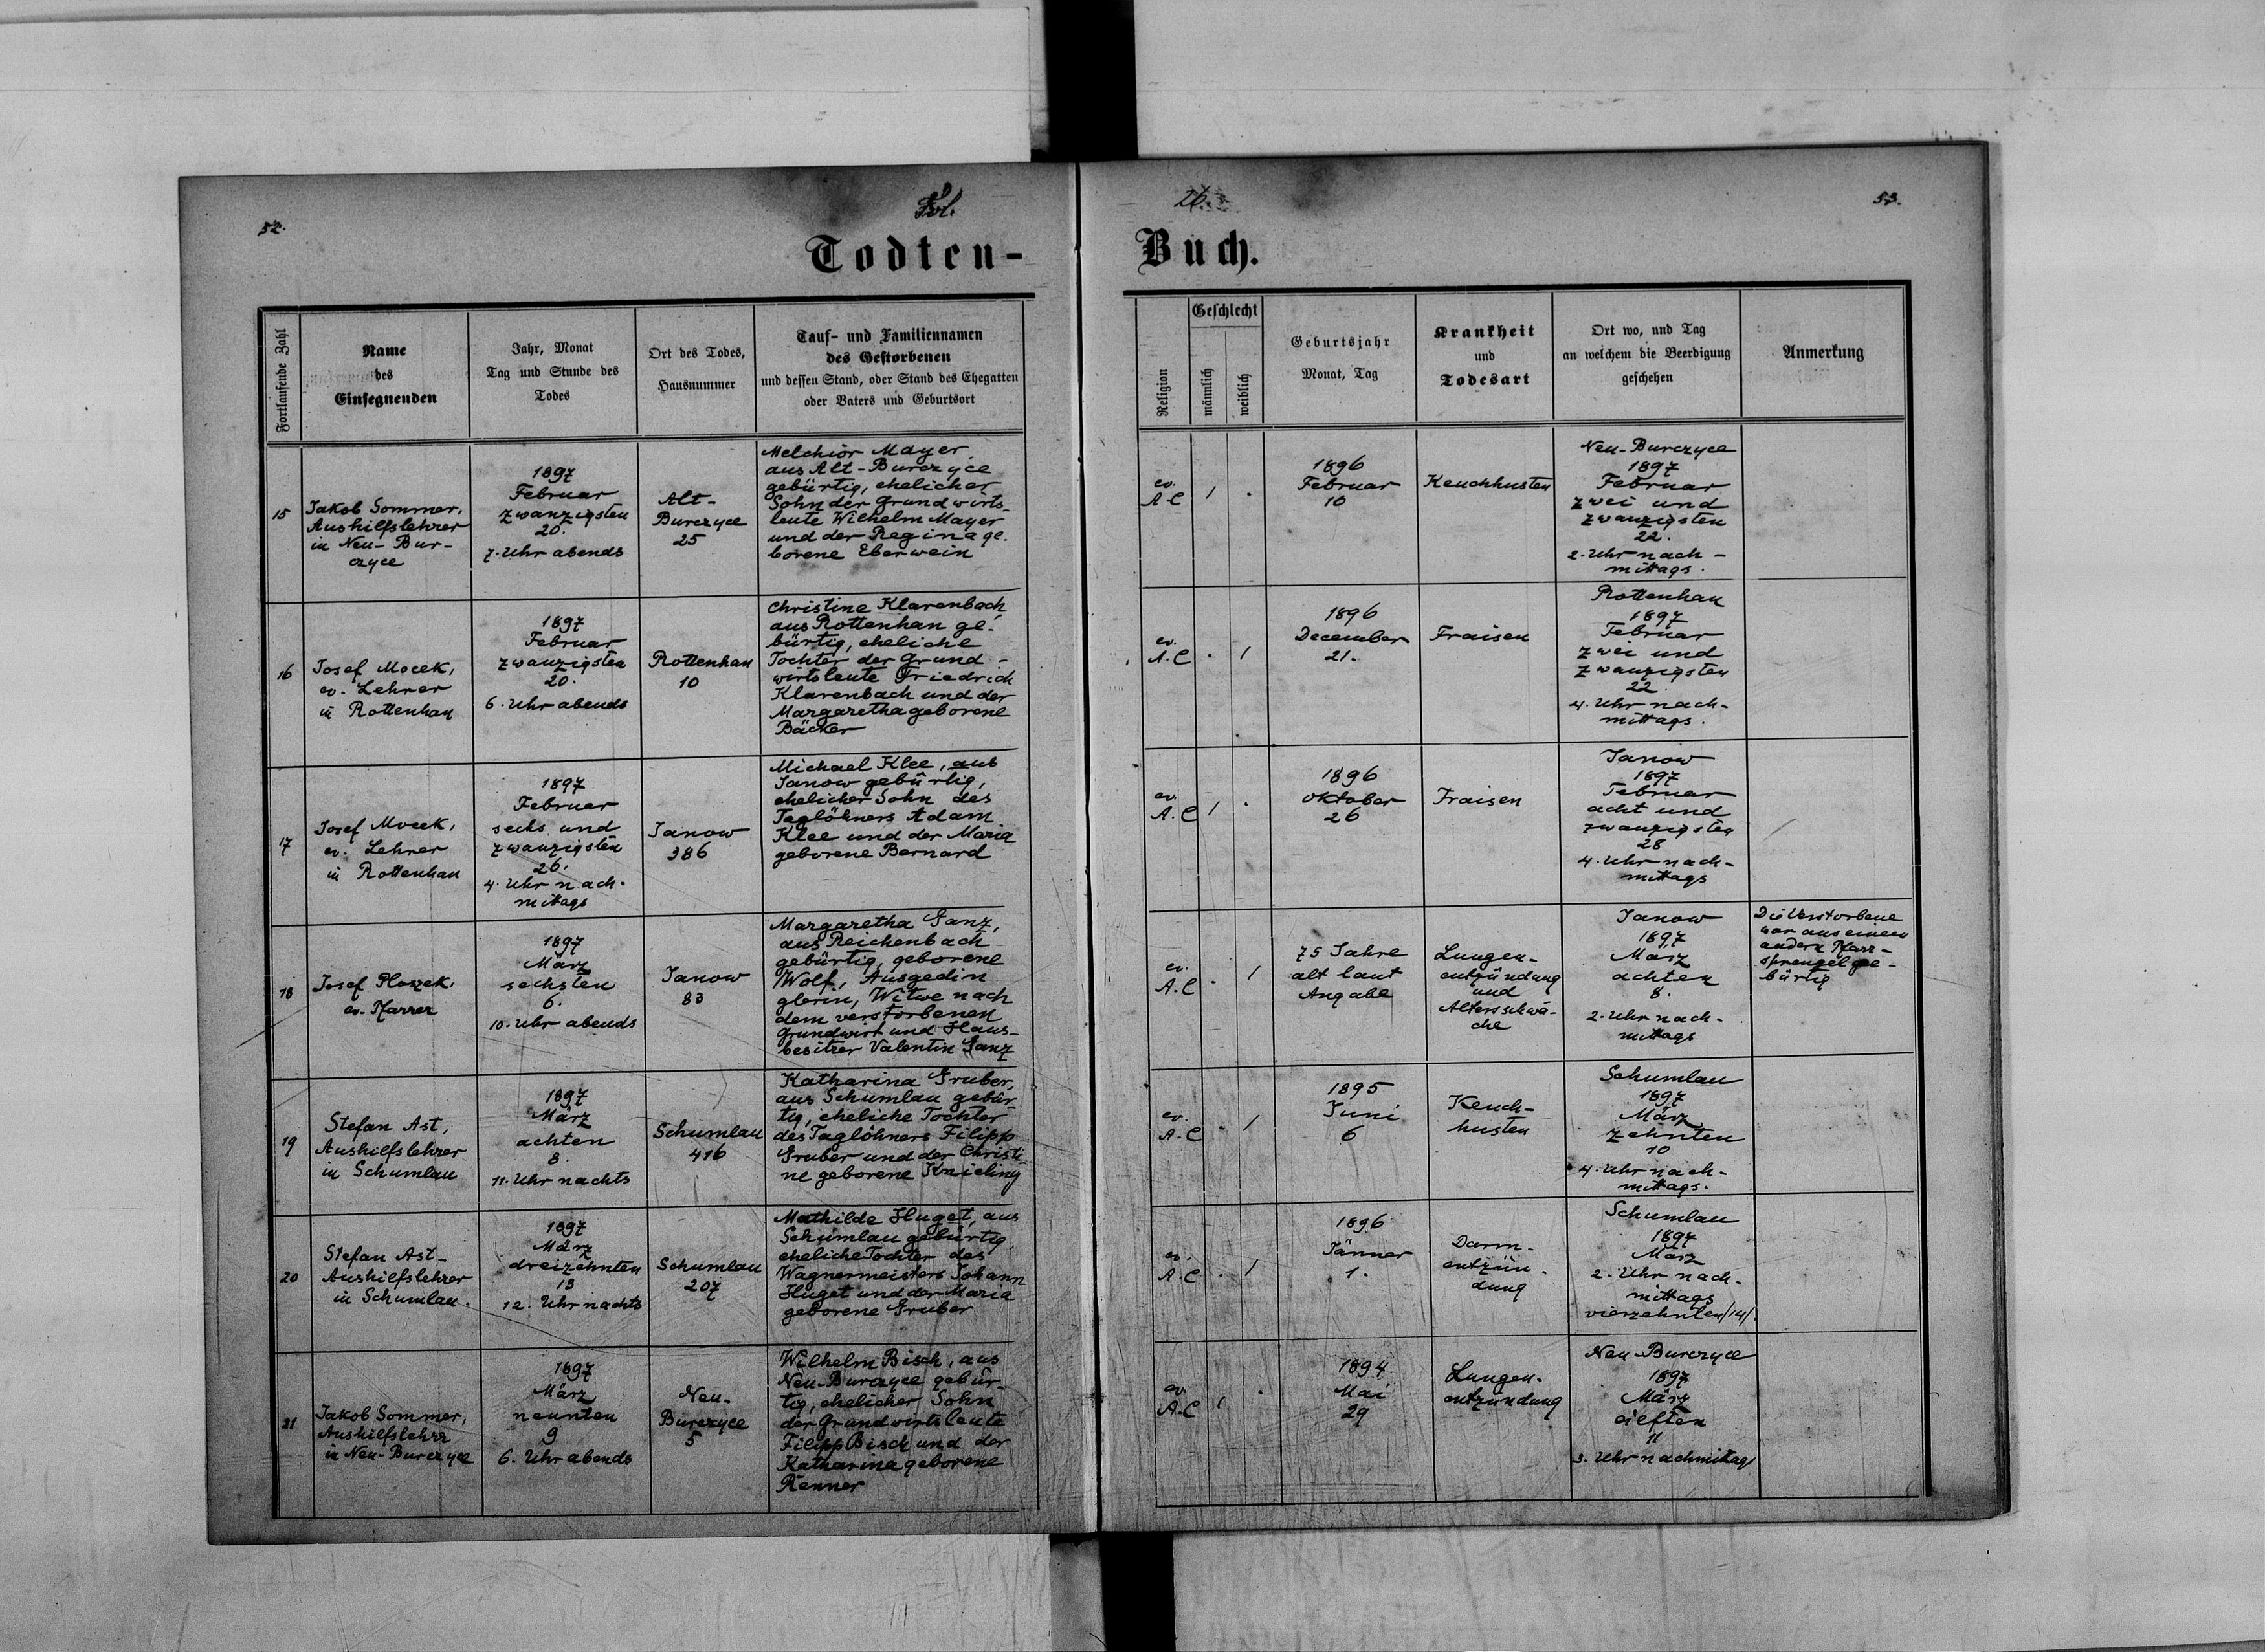 52.
Fol.
Todten-
Fortlaufende Zahl
Name
des
Einsegnenden
Jahr, Monat
Tag und Stunde des
Todes
Ort des Todes,
Hausnummer
Tauf- und Familiennamen
des Gestorbenen
und dessen Stand, oder Stand des Ehegatten
oder Vaters und Geburtsort
15
Jakob Sommer,
Aushilfslehrer
in Neu-Bur-
czyce
1897
Februar
zwanzigsten
20.
7. Uhr abends
Alt-
Burczyce
25
Melchior Mayer
aus Alt-Burczyce
gebürtig, ehelicher
Sohn der Grundwirts-
leute Wilhelm Mayer
und der Regina ge-
borene Eberwein
16
Josef Mocek,
ev. Lehrer
in Rottenhan
1897
Februar
zwanzigsten
20.
6. Uhr abends
Rottenhan
10
Christine Klarenbach
aus Rottenhan ge-
bürtig, eheliche
Tochter der Grund-
wirtsleute Friedrich
Klarenbach und der
Margaretha geborene
Bäcker
17
Josef Mocek,
ev. Lehrer
in Rottenhan
1897
Februar
sechs und
zwanzigsten
26.
4. Uhr nach-
mittags
Janow
386
Michael Klee, aus
Janow gebürtig,
ehelicher Sohn des
Taglöhners Adam
Klee und der Maria
geborene Bernard
18
Josef Ploszek,
ev. Pfarrer
1897
März
sechsten
6.
10. Uhr abends
Janow
83
Margaretha Ganz,
aus Reichenbach
gebürtig, geborene
Wolf, Ausgedin
glerin, Witwe nach
dem verstorbenen
Grundwirt und Haus-
besitzer Valentin Ganz
19
Stefan Ast,
Aushilfslehrer
in Schumlau
1897
März
achten
8.
11. Uhr nachts
Schumlau
416
Katharina Gruber,
aus Schumlau gebür-
tig, eheliche Tochter
des Taglöhners Filipp
Gruber und der Christi
ne geborene Knieling
20
Stefan Ast-
Aushilfslehrer
in Schumlau.
1897
März
dreizehnten
13
12. Uhr nachts
Schumlau
207
Mathilde Huget, aus
Schumlau gebürtig
eheliche Tochter des
Wagnermeisters Johann
Huget und der Maria
geborene Gruber
21
Jakob Sommer,
Aushilfslehrer
in Neu-Burczyce
1897
März
neunten
9
6. Uhr abends
Neu-
Burczyce
5
Wilhelm Bisch, aus
Neu-Burczyce gebür-
tig, ehelicher Sohn
der Grundwirtsleute
Filipp Bisch und der
Katharina geborene
Renner
26.
53.
Buch.
Religion
Geschlecht
männlich
weiblich
Geburtsjahr
Monat, Tag
Krankheit
und
Todesart
Ort wo, und Tag
an welchem die Beerdigung
geschehen
Anmerkung
ev.
A.C
1896
Februar
10
Keuchhusten
Neu-Burczyce
1897
Februar
zwei und
zwanzigsten
22.
2. Uhr nach-
mittags.
ev.
A.C
1896
December
21.
Fraisen
Rottenhan
1897
Februar
zwei und
zwanzigsten
22
4. Uhr nach-
mittags.
ev.
A.C
1896
Oktober
26
Fraisen
Janow
1897
Februar
acht und
zwanzigsten
28
4. Uhr nach-
mittags
ev.
A.C
75 Jahre
alt laut
Angabe
Lungen-
entzündung
und
Altersschwä-
che
Janow
1897
März
achten
8.
2. Uhr nach-
mittags
Die Verstorbene
war aus einem
andern Pfarr-
sprengel ge-
bürtig
ev.
A.C
1895
Juni
6
Keuch-
husten
Schumlau
1897
März
zehnten
10
4. Uhr nach-
mittags.
ev.
A.C
1896
Jänner
1.
Darm-
entzün-
dung
Schumlau
1897
März
2. Uhr nach-
mittags
vierzehnten/14/.
ev.
A.C
1894
Mai
29
Lungen-
entzündung
Neu-Burczyce
1897
März
eilften
11
3. Uhr nachmittags